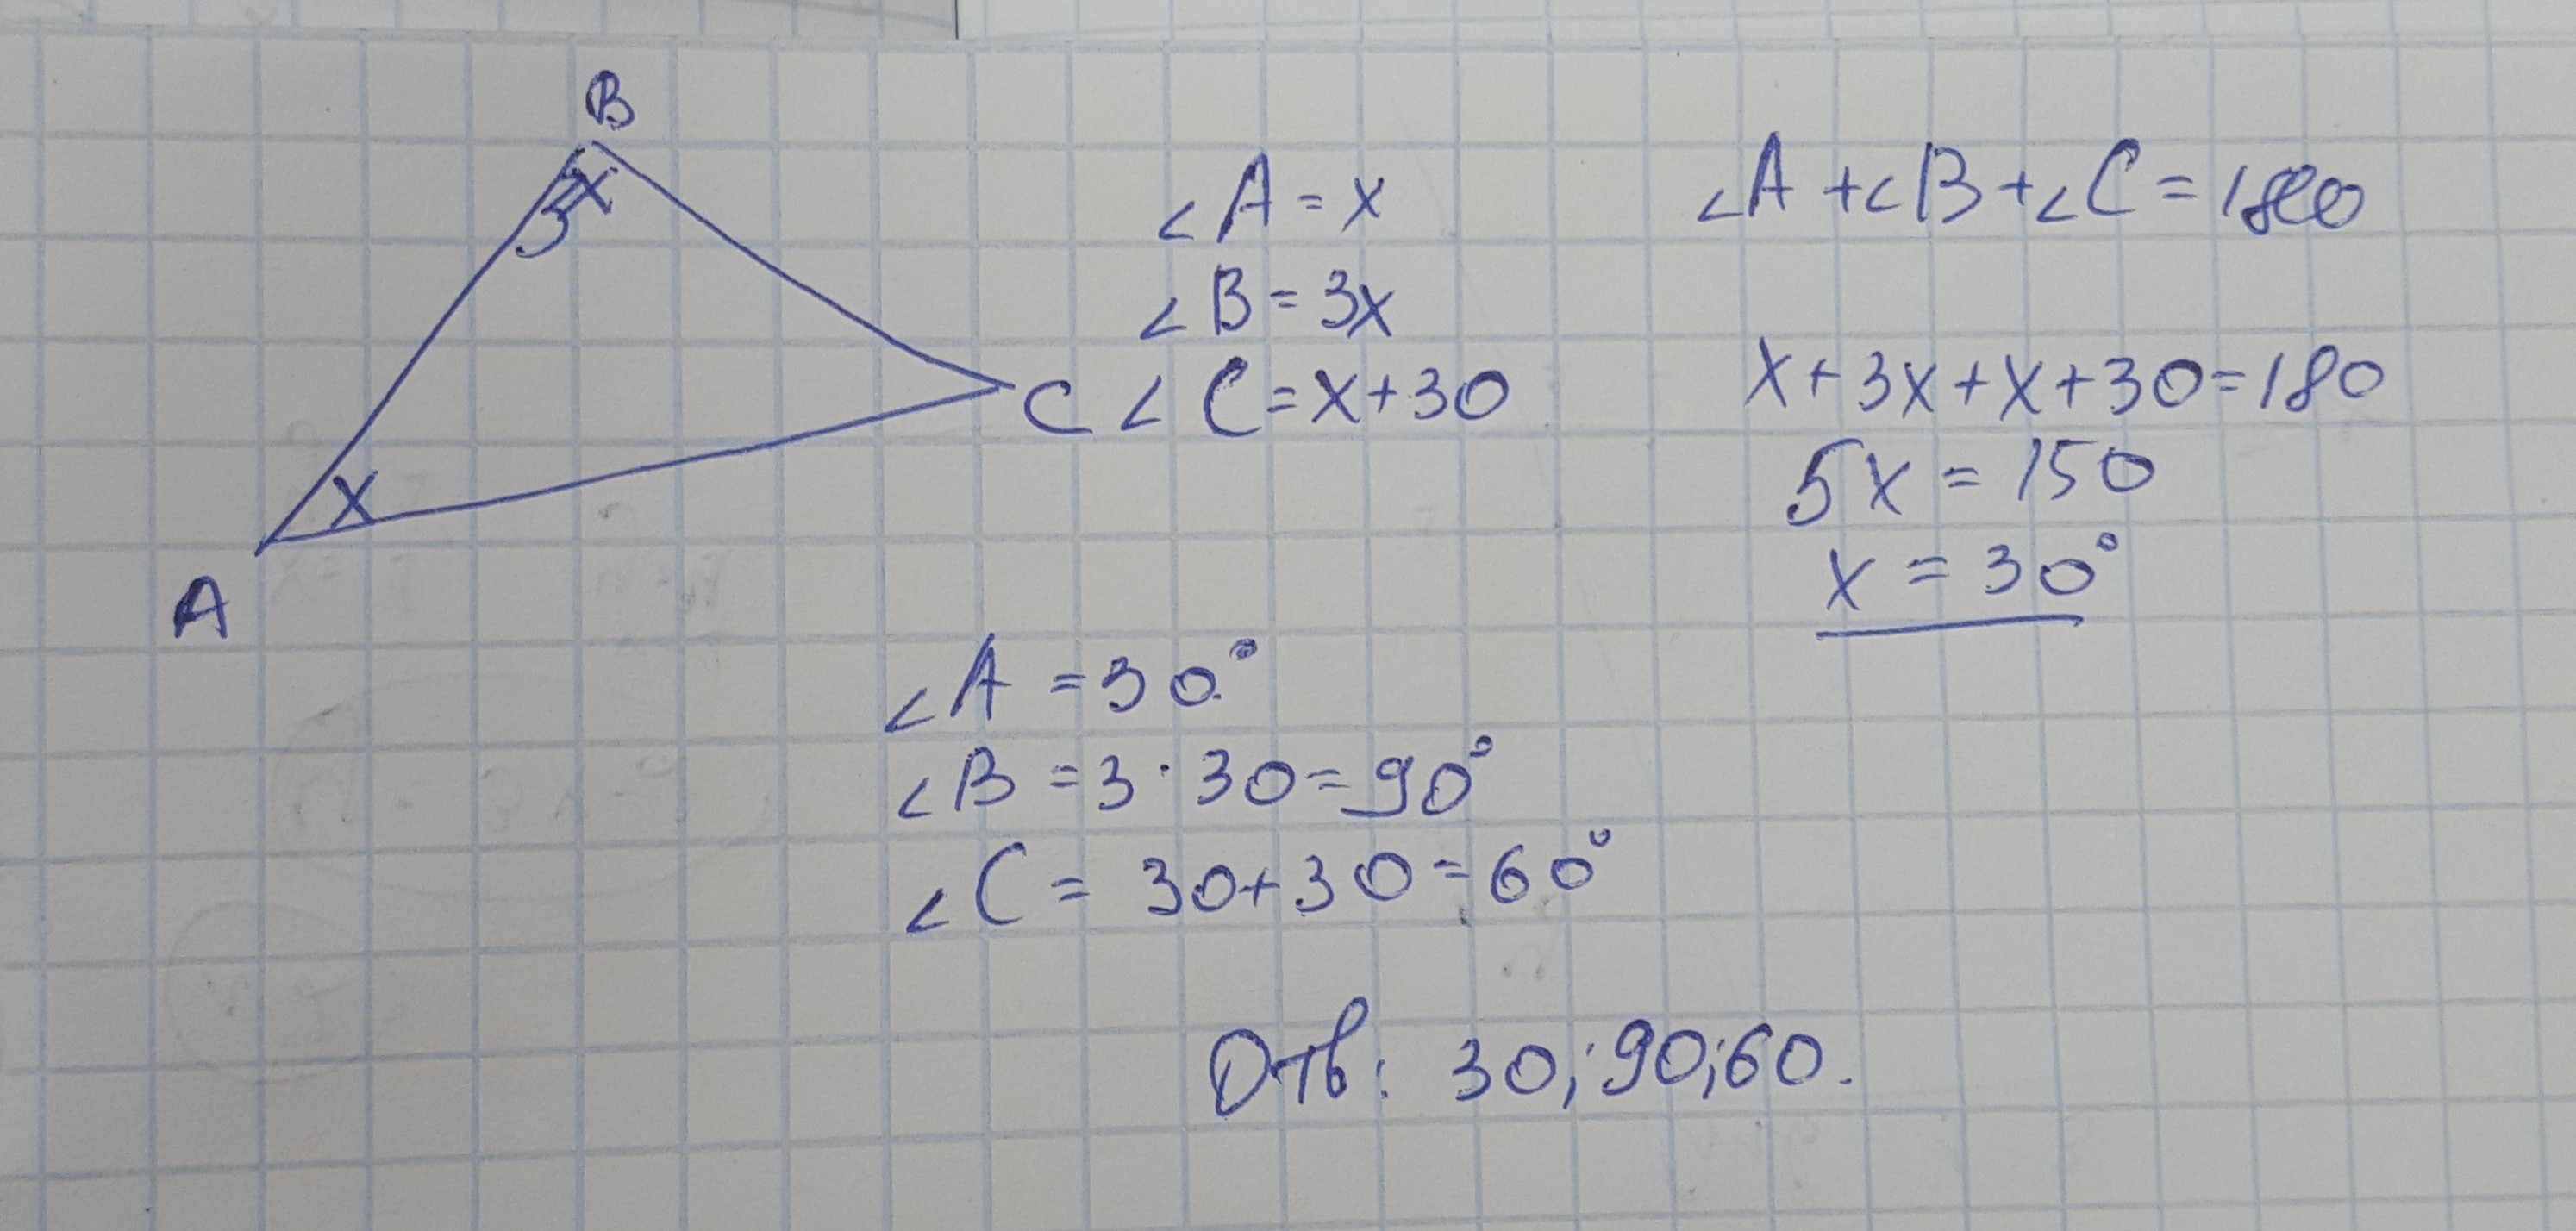 B
3x
x
A
C
∠A = x
∠B = 3x
∠C = x+30
∠A +∠B +∠C = 180
x+3x+x+30=180
5x = 150
x = 30°
∠A = 30°
∠B = 3·30=90°
∠C = 30+30=60°
Отв: 30;90;60.